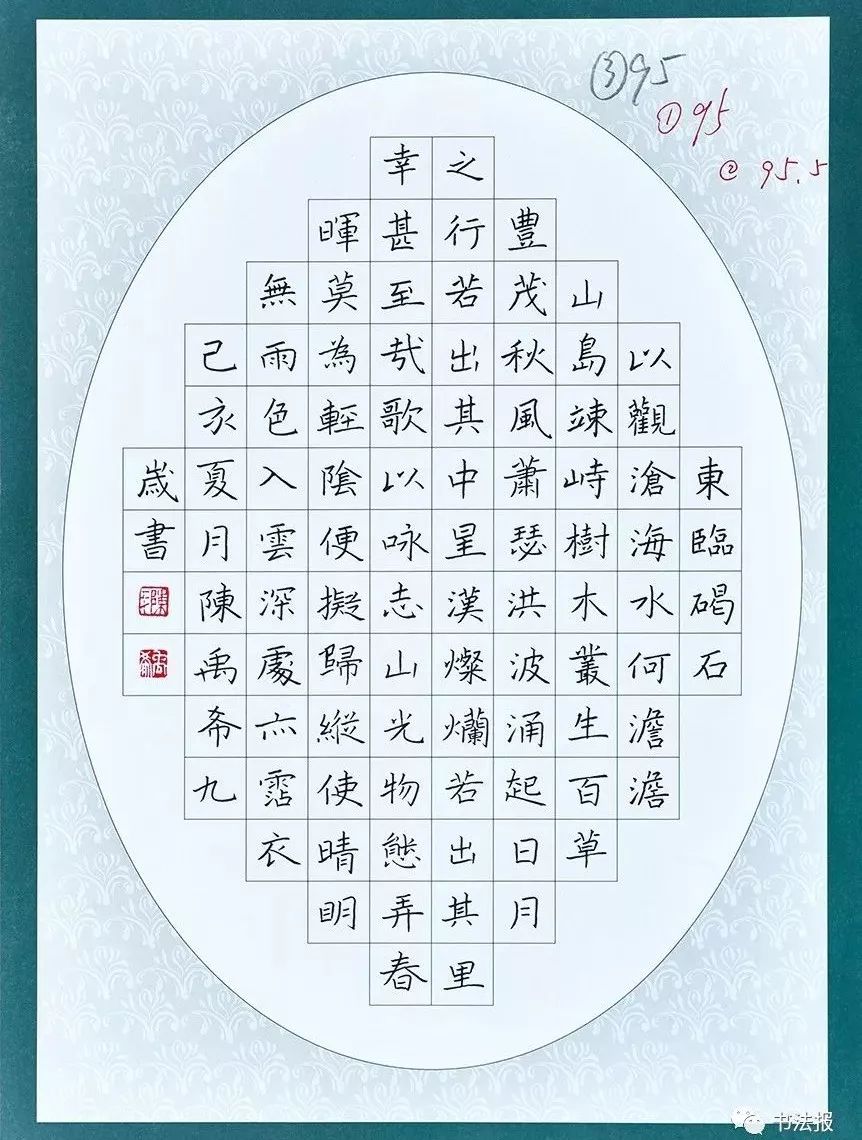 東臨碣石
以觀滄海水何澹澹
山島竦峙樹木叢生百草
豐茂秋風蕭瑟洪波涌起日月
之行若出其中星漢燦爛若出其里
幸甚至哉歌以咏志山光物態弄春
暉莫為輕陰便擬歸縱使晴明
無雨色入雲深處亦霑衣
己亥夏月陳禹希九
歲書
③95
①95
②95.5
书法报